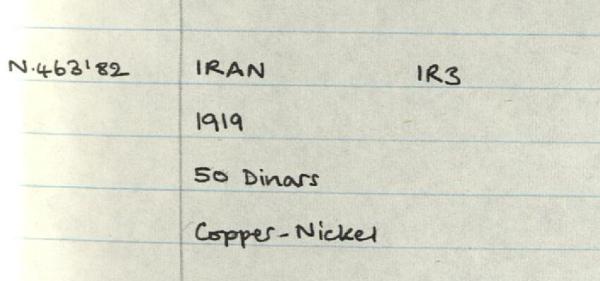 N.463'82 IRAN IR3
1919
50 Dinars
Copper-Nickel